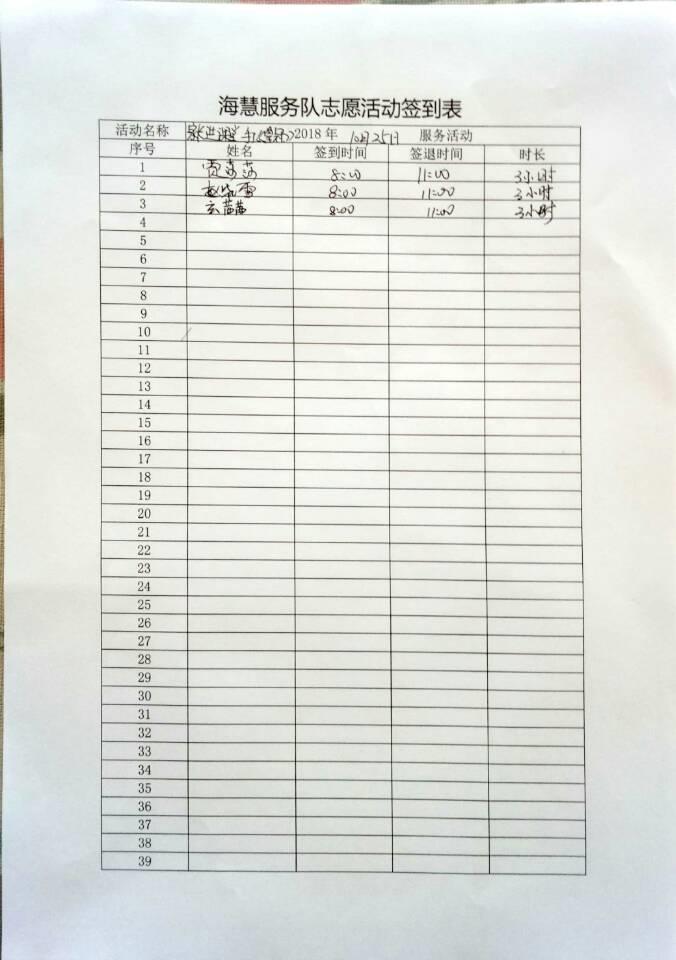 海慧服务队志愿活动签到表
活动名称 2018 年 10月25日 服务活动
序号 姓名 签到时间 签退时间 时长
1 贾莎莎 8:00 11:00 3小时
2 赵晓雪 8:00 11:00 3小时
3 8:00 11:00 3小时
4
5
6
7
8
9
10
11
12
13
14
15
16
17
18
19
20
21
22
23
24
25
26
27
28
29
30
31
32
33
34
35
36
37
38
39